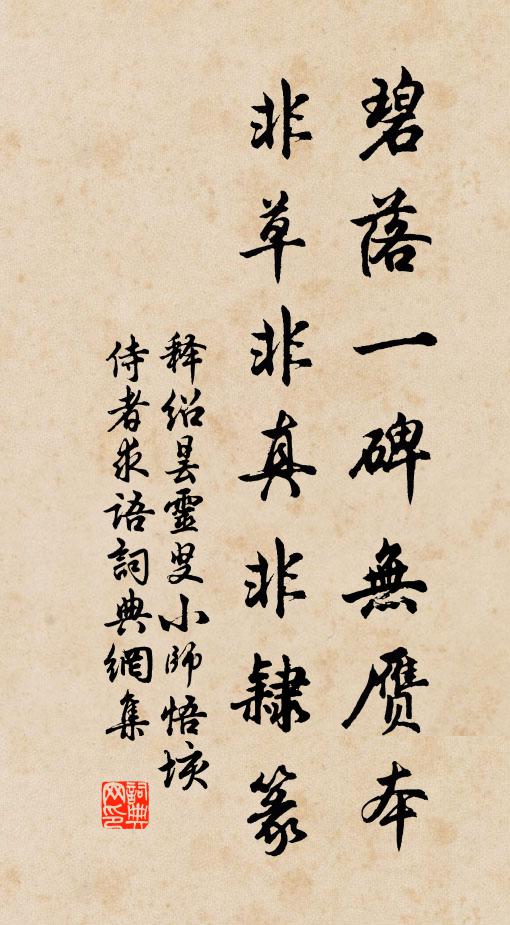 碧落一碑無贗本
非草非真非隸篆
釋紹曇靈叟小師悟垓
侍者求語詞典網集
詞典网印